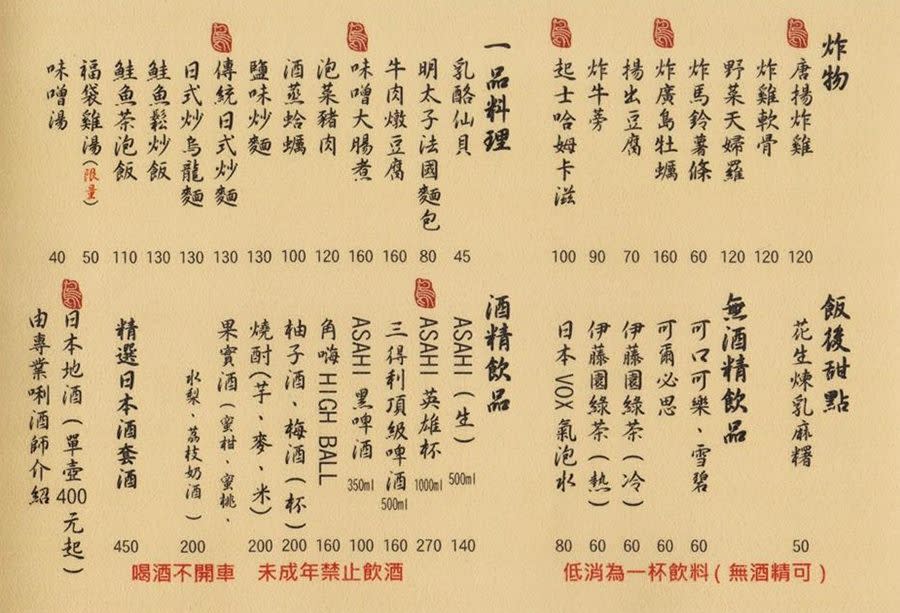 炸物
唐揚炸雞 120
炸雞軟骨 120
野菜天婦羅 120
炸馬鈴薯條 60
炸廣島牡蠣 160
揚出豆腐 70
炸牛蒡 90
起士哈姆卡滋 100
一品料理
乳酪仙貝 45
明太子法國麵包 80
牛肉燉豆腐 160
味噌大腸煮 160
泡菜豬肉 120
酒蒸蛤蠣 100
鹽味炒麵 130
傳統日式炒麵 130
日式炒烏龍麵 130
鮭魚鬆炒飯 130
鮭魚茶泡飯 110
福袋雞湯(限量) 50
味噌湯 40
飯後甜點
花生煉乳麻糬 50
無酒精飲品
可口可樂、雪碧 60
可爾必思 60
伊藤園綠茶(冷) 60
伊藤園綠茶(熱) 60
日本 VOX 氣泡水 80
酒精飲品
ASAHI(生) 500ml 140
ASAHI 英雄杯 1000ml 270
三得利頂級啤酒 500ml 160
ASAHI 黑啤酒 350ml 100
角嗨 HIGH BALL 160
柚子酒、梅酒(杯) 200
燒酎(芋、麥、米) 200
果實酒(蜜柑、蜜桃、
水梨、荔枝奶酒) 200
精選日本酒套酒 450
日本地酒(單壺400元起)
由專業唎酒師介紹
低消為一杯飲料(無酒精可)
喝酒不開車 未成年禁止飲酒